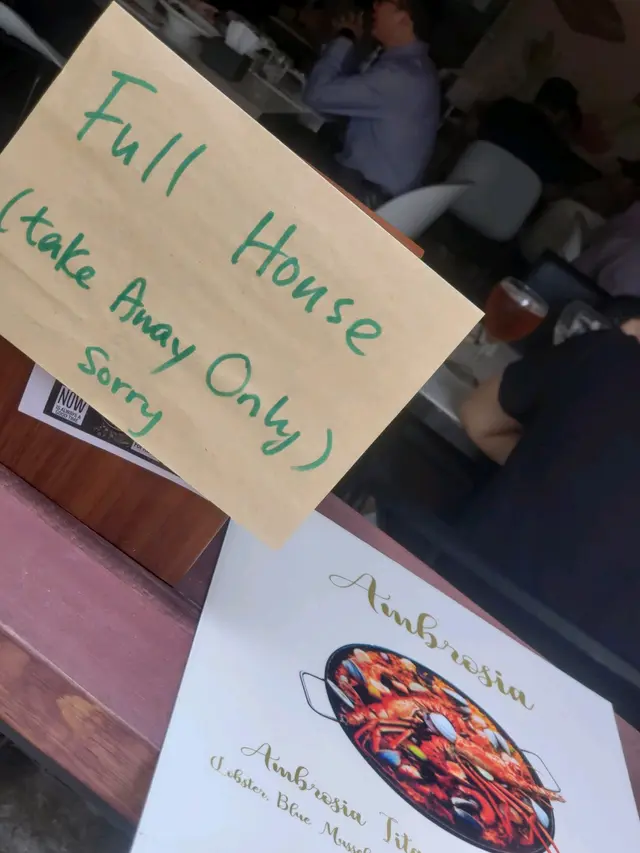 Full House
(take Away Only)
Sorry
NOW
Ambrosia
Ambrosia
(Lobster, Blue